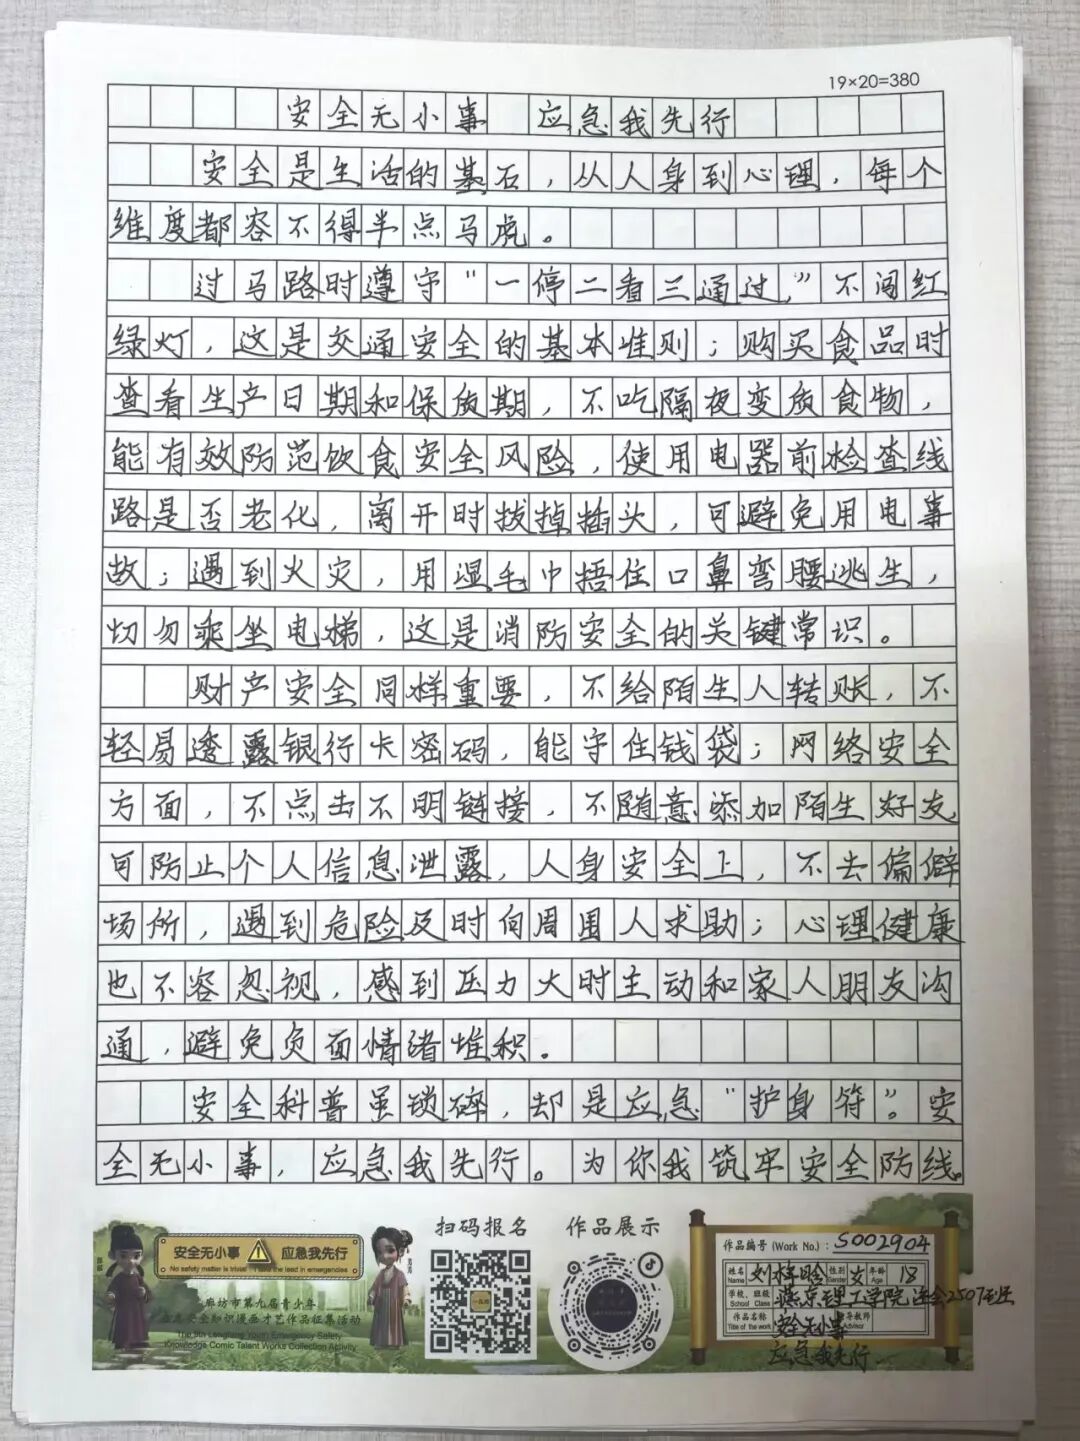 19×20=380
安全无小事 应急我先行
安全是生活的基石，从人身到心理，每个
维度都容不得半点马虎。
过马路时遵守“一停二看三通过，”不闯红
绿灯，这是交通安全的基本准则；购买食品时
查看生产日期和保质期，不吃隔夜变质食物，
能有效防范饮食安全风险，使用电器前检查线
路是否老化，离开时拔掉插头，可避免用电事
故；遇到火灾，用湿毛巾捂住口鼻弯腰逃生，
切勿乘坐电梯，这是消防安全的关键常识。
财产安全同样重要，不给陌生人转账，不
轻易透露银行卡密码，能守住钱袋；网络安全
方面，不点击不明链接，不随意添加陌生好友
可防止个人信息泄露，人身安全上，不去偏僻
场所，遇到危险及时向周围人求助；心理健康
也不容忽视，感到压力大时主动和家人朋友沟
通，避免负面情绪堆积。
安全科普虽琐碎，却是应急“护身符”。安
全无小事，应急我先行。为你我筑牢安全防线。
扫码报名 作品展示
安全无小事 应急我先行
No safety matter is trivial I take the lead in emergencies
廊坊市第九届青少年
应急安全知识漫画才艺作品征集活动
The 9th Langfang Youth Emergency Safety
Knowledge Comic Talent Works Collection Activity
作品编号 (Work No.)：S002904
姓名 Name 刘 性别 Gender 女 年龄 Age 18
学校、班级 School Class 燕京理工学院 2507班
作品名称 Title of the work 安全无小事 指导教师 Advisor
应急我先行